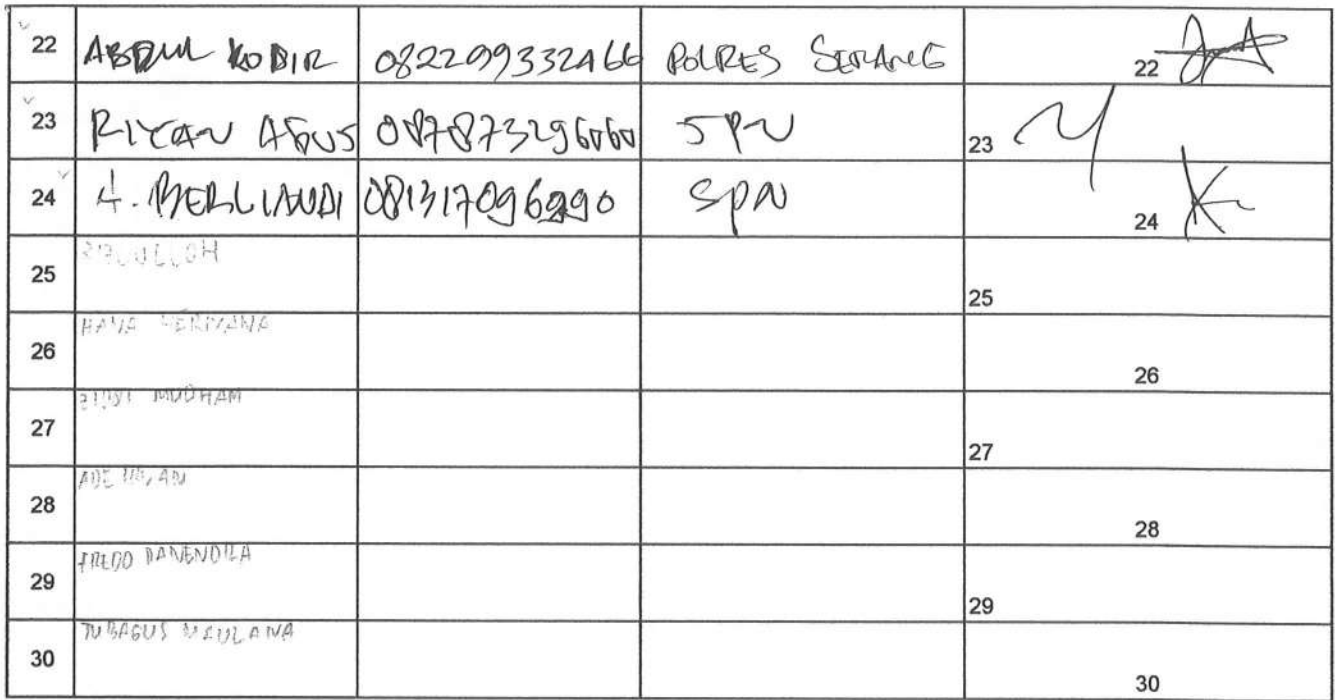 22 ABDUL KODIR 082299332466 POLRES SERANG 22
23 RIYAN AGUS 087873296060 SPN 23
24 A. BERLIANDI 081317096990 SPN 24
25 25
26 HANA HERMANA 26
27 MUDHAM 27
28 ADE 28
29 FREDO DANENDRA 29
30 TUBAGUS MAULANA 30